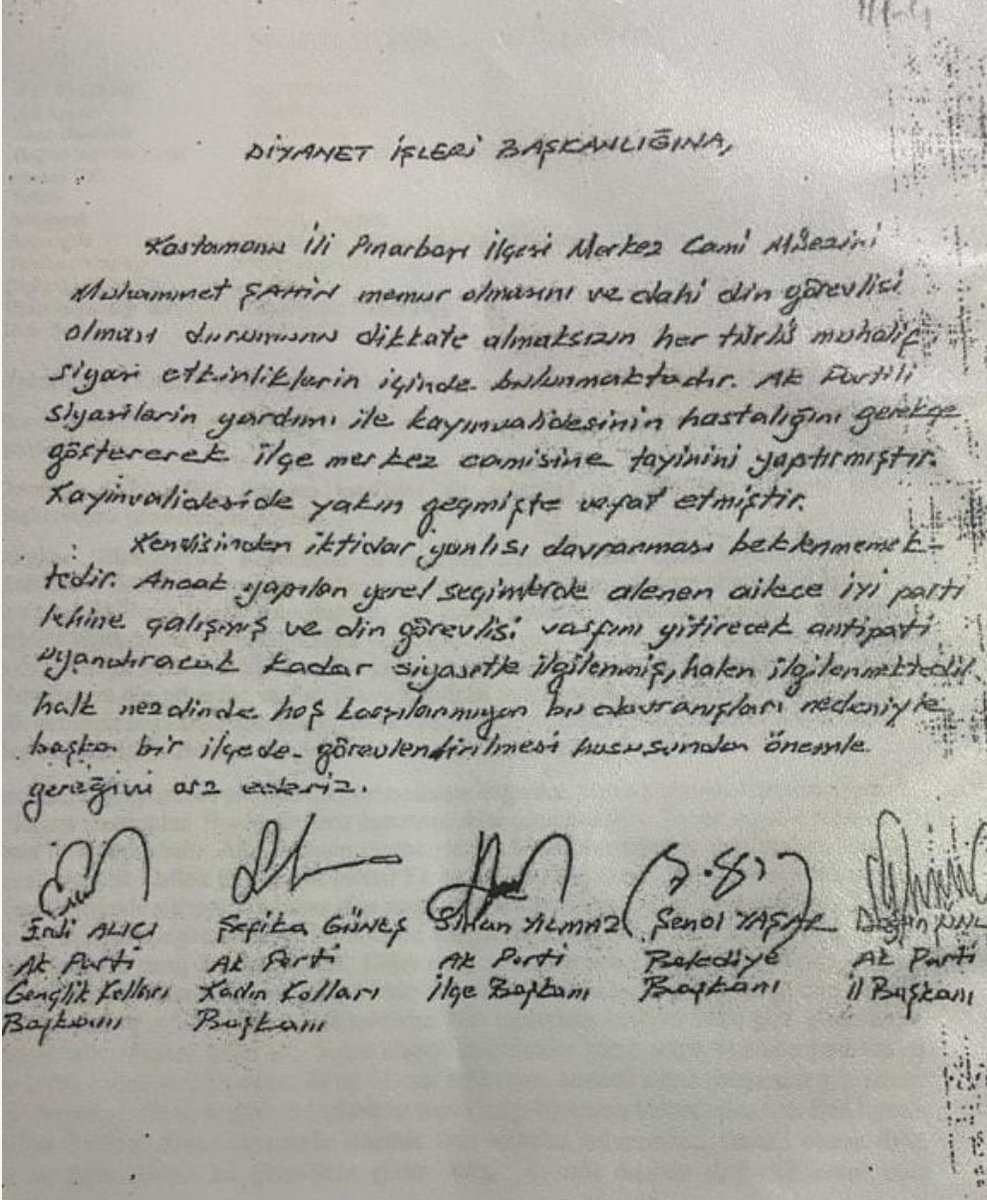 DİYANET İŞLERİ BAŞKANLIĞINA,
Kastamonu İli Pınarbaşı İlçesi Merkez Cami Müezini
Muhammet ŞAHİN memur olmasını ve dahi din görevlisi
olması durumunu dikkate almaksızın her türlü muhalif
siyasi etkinliklerin içinde bulunmaktadır. Ak Partili
siyasilerin yardımı ile kayınvalidesinin hastalığını gerekçe
göstererek ilçe merkez camisine tayinini yaptırmıştır.
Kayınvalideside yakın geçmişte vefat etmiştir.
Kendisinden iktidar yanlısı davranması beklenmemek-
tedir. Ancak yapılan yerel seçimlerde alenen ailece iyi parti
lehine çalışmış ve din görevlisi vasfını yitirecek antipati
uyandıracak kadar siyasetle ilgilenmiş, halen ilgilenmektedir.
halk nezdinde hoş karşılanmayan bu davranışları nedeniyle
başka bir ilçede görevlendirilmesi hususunda önemle
gereğini arz ederiz.
Erdi ALICI Şefika GÜNEŞ Sinan YILMAZ Şenol YAŞAR Doğan ÜNLÜ
Ak Parti Ak Parti Ak Parti Belediye Ak Parti
Gençlik Kolları Kadın Kolları İlçe Başkanı Başkanı İl Başkanı
Başkanı Başkanı